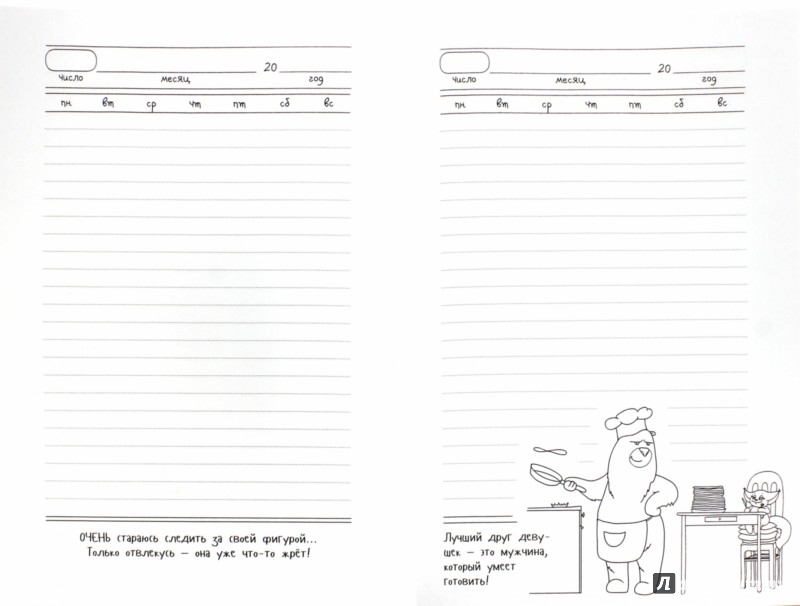 20
число месяц год
пн вт ср чт пт сб вс
ОЧЕНЬ стараюсь следить за своей фигурой...
Только отвлекусь – она уже что-то жрёт!
20
число месяц год
пн вт ср чт пт сб вс
Лучший друг деву-
шек – это мужчина,
который умеет
готовить!
Л